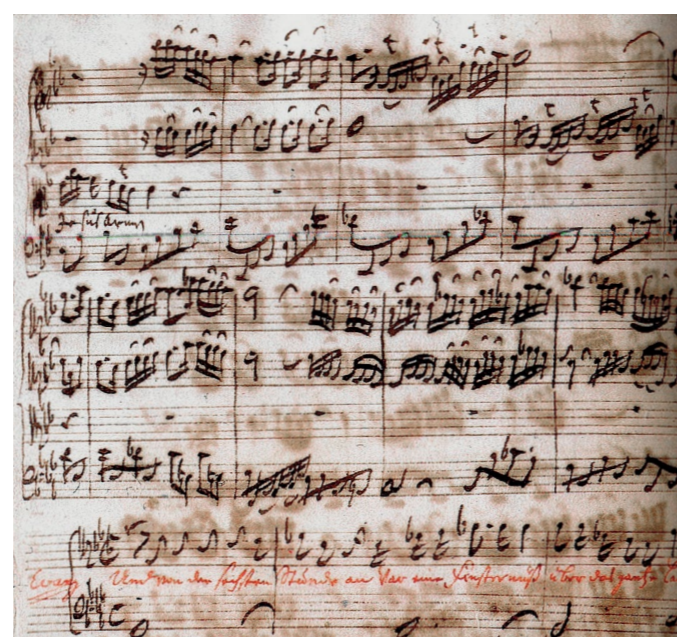 Jesus Armen
Evang Und von der sechsten Stunde an war eine Finsternuß über das gantze